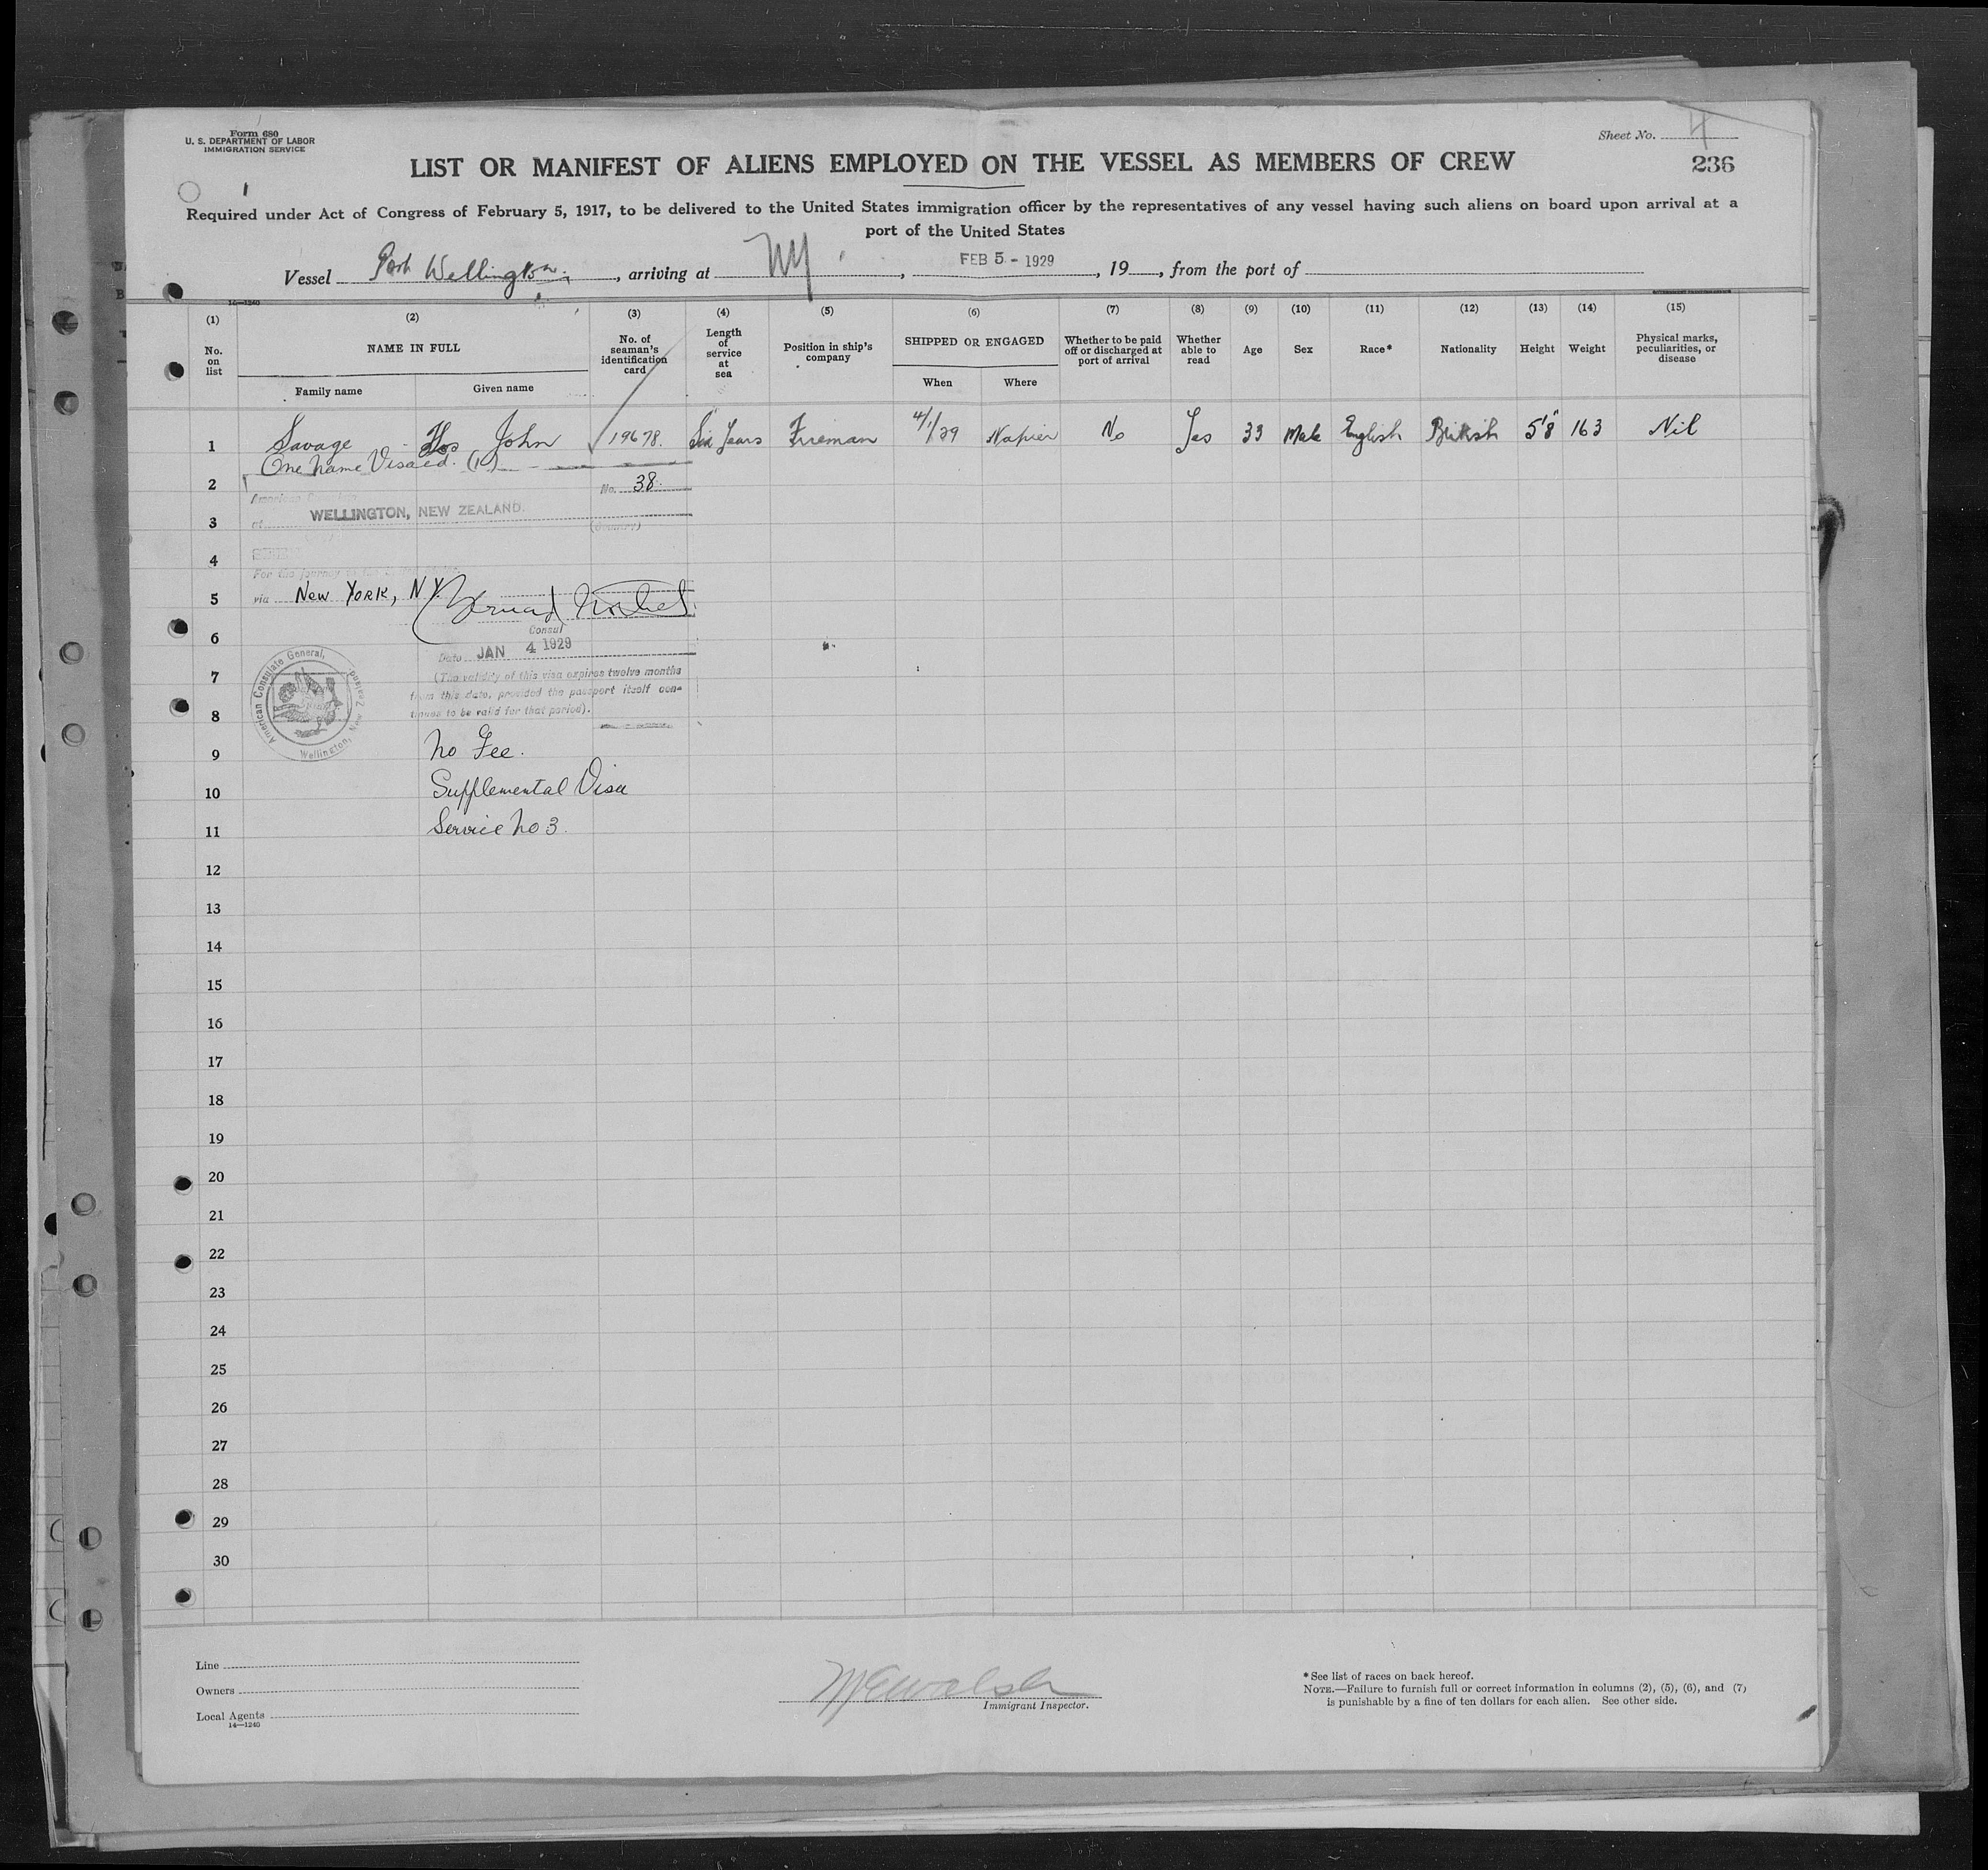 Form 680
U. S. DEPARTMENT OF LABOR
IMMIGRATION SERVICE
Sheet No. 4
236
LIST OR MANIFEST OF ALIENS EMPLOYED ON THE VESSEL AS MEMBERS OF CREW
Required under Act of Congress of February 5, 1917, to be delivered to the United States immigration officer by the representatives of any vessel having such aliens on board upon arrival at a
port of the United States
Vessel Port Wellington, arriving at NY, FEB 5 - 1929, 19, from the port of
14—1240
(1) (2) (3) (4) (5) (6) (7) (8) (9) (10) (11) (12) (13) (14) (15)
No. on list
NAME IN FULL
Family name
Given name
No. of seaman's identification card
Length of service at sea
Position in ship's company
SHIPPED OR ENGAGED
When
Where
Whether to be paid off or discharged at port of arrival
Whether able to read
Age
Sex
Race*
Nationality
Height
Weight
Physical marks, peculiarities, or disease
1 Savage John 19678. Six Years Fireman 4/1/29 Napier No Yes 33 Male English British 5'8" 163 Nil
One Name Visaed. (1)
2
American
No. 38.
3
at WELLINGTON, NEW ZEALAND.
(Country)
4
For the journey to the
5
via New York, N.Y.
6
Consul
Date JAN 4 1929
7
(The validity of this visa expires twelve months
from this date, provided the passport itself con-
tinues to be valid for that period).
8
American Consulate General, Wellington, New Zealand
9
No Fee.
10
Supplemental Visa
11
Service No 3.
12
13
14
15
16
17
18
19
20
21
22
23
24
25
26
27
28
29
30
Line
Owners
Local Agents
14—1240
Immigrant Inspector.
*See list of races on back hereof.
NOTE.—Failure to furnish full or correct information in columns (2), (5), (6), and (7)
is punishable by a fine of ten dollars for each alien. See other side.